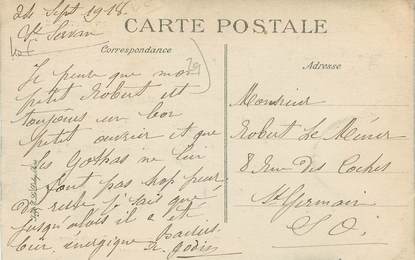 24 Sept 1918.
CARTE POSTALE
Correspondance
Adresse
Je pense que mon
petit Robert est
toujours un bon
petit ouvrier et que
les Gothas ne lui
font pas trop peur
Du reste je sais que
jusqu'alors il a été
bien énergique
Monsieur
Robert Le Méner
8 Rue des Coches
St Germain
S O.